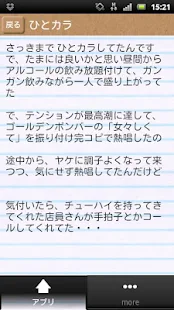 15:21
戻る ひとカラ
さっきまで ひとカラしてたんです
で、たまには良いかと思い昼間から
アルコールの飲み放題付けて、ガン
ガン飲みながら一人で盛り上がって
た
で、テンションが最高潮に達して、
ゴールデンボンバーの「女々しく
て」を振り付け完コピで熱唱したの
途中から、ヤケに調子よくなって来
つつ、気にせず熱唱してたんだけど
気付いたら、チューハイを持ってき
てくれた店員さんが手拍子とかコー
ルしてくれてた・・・
アプリ
more